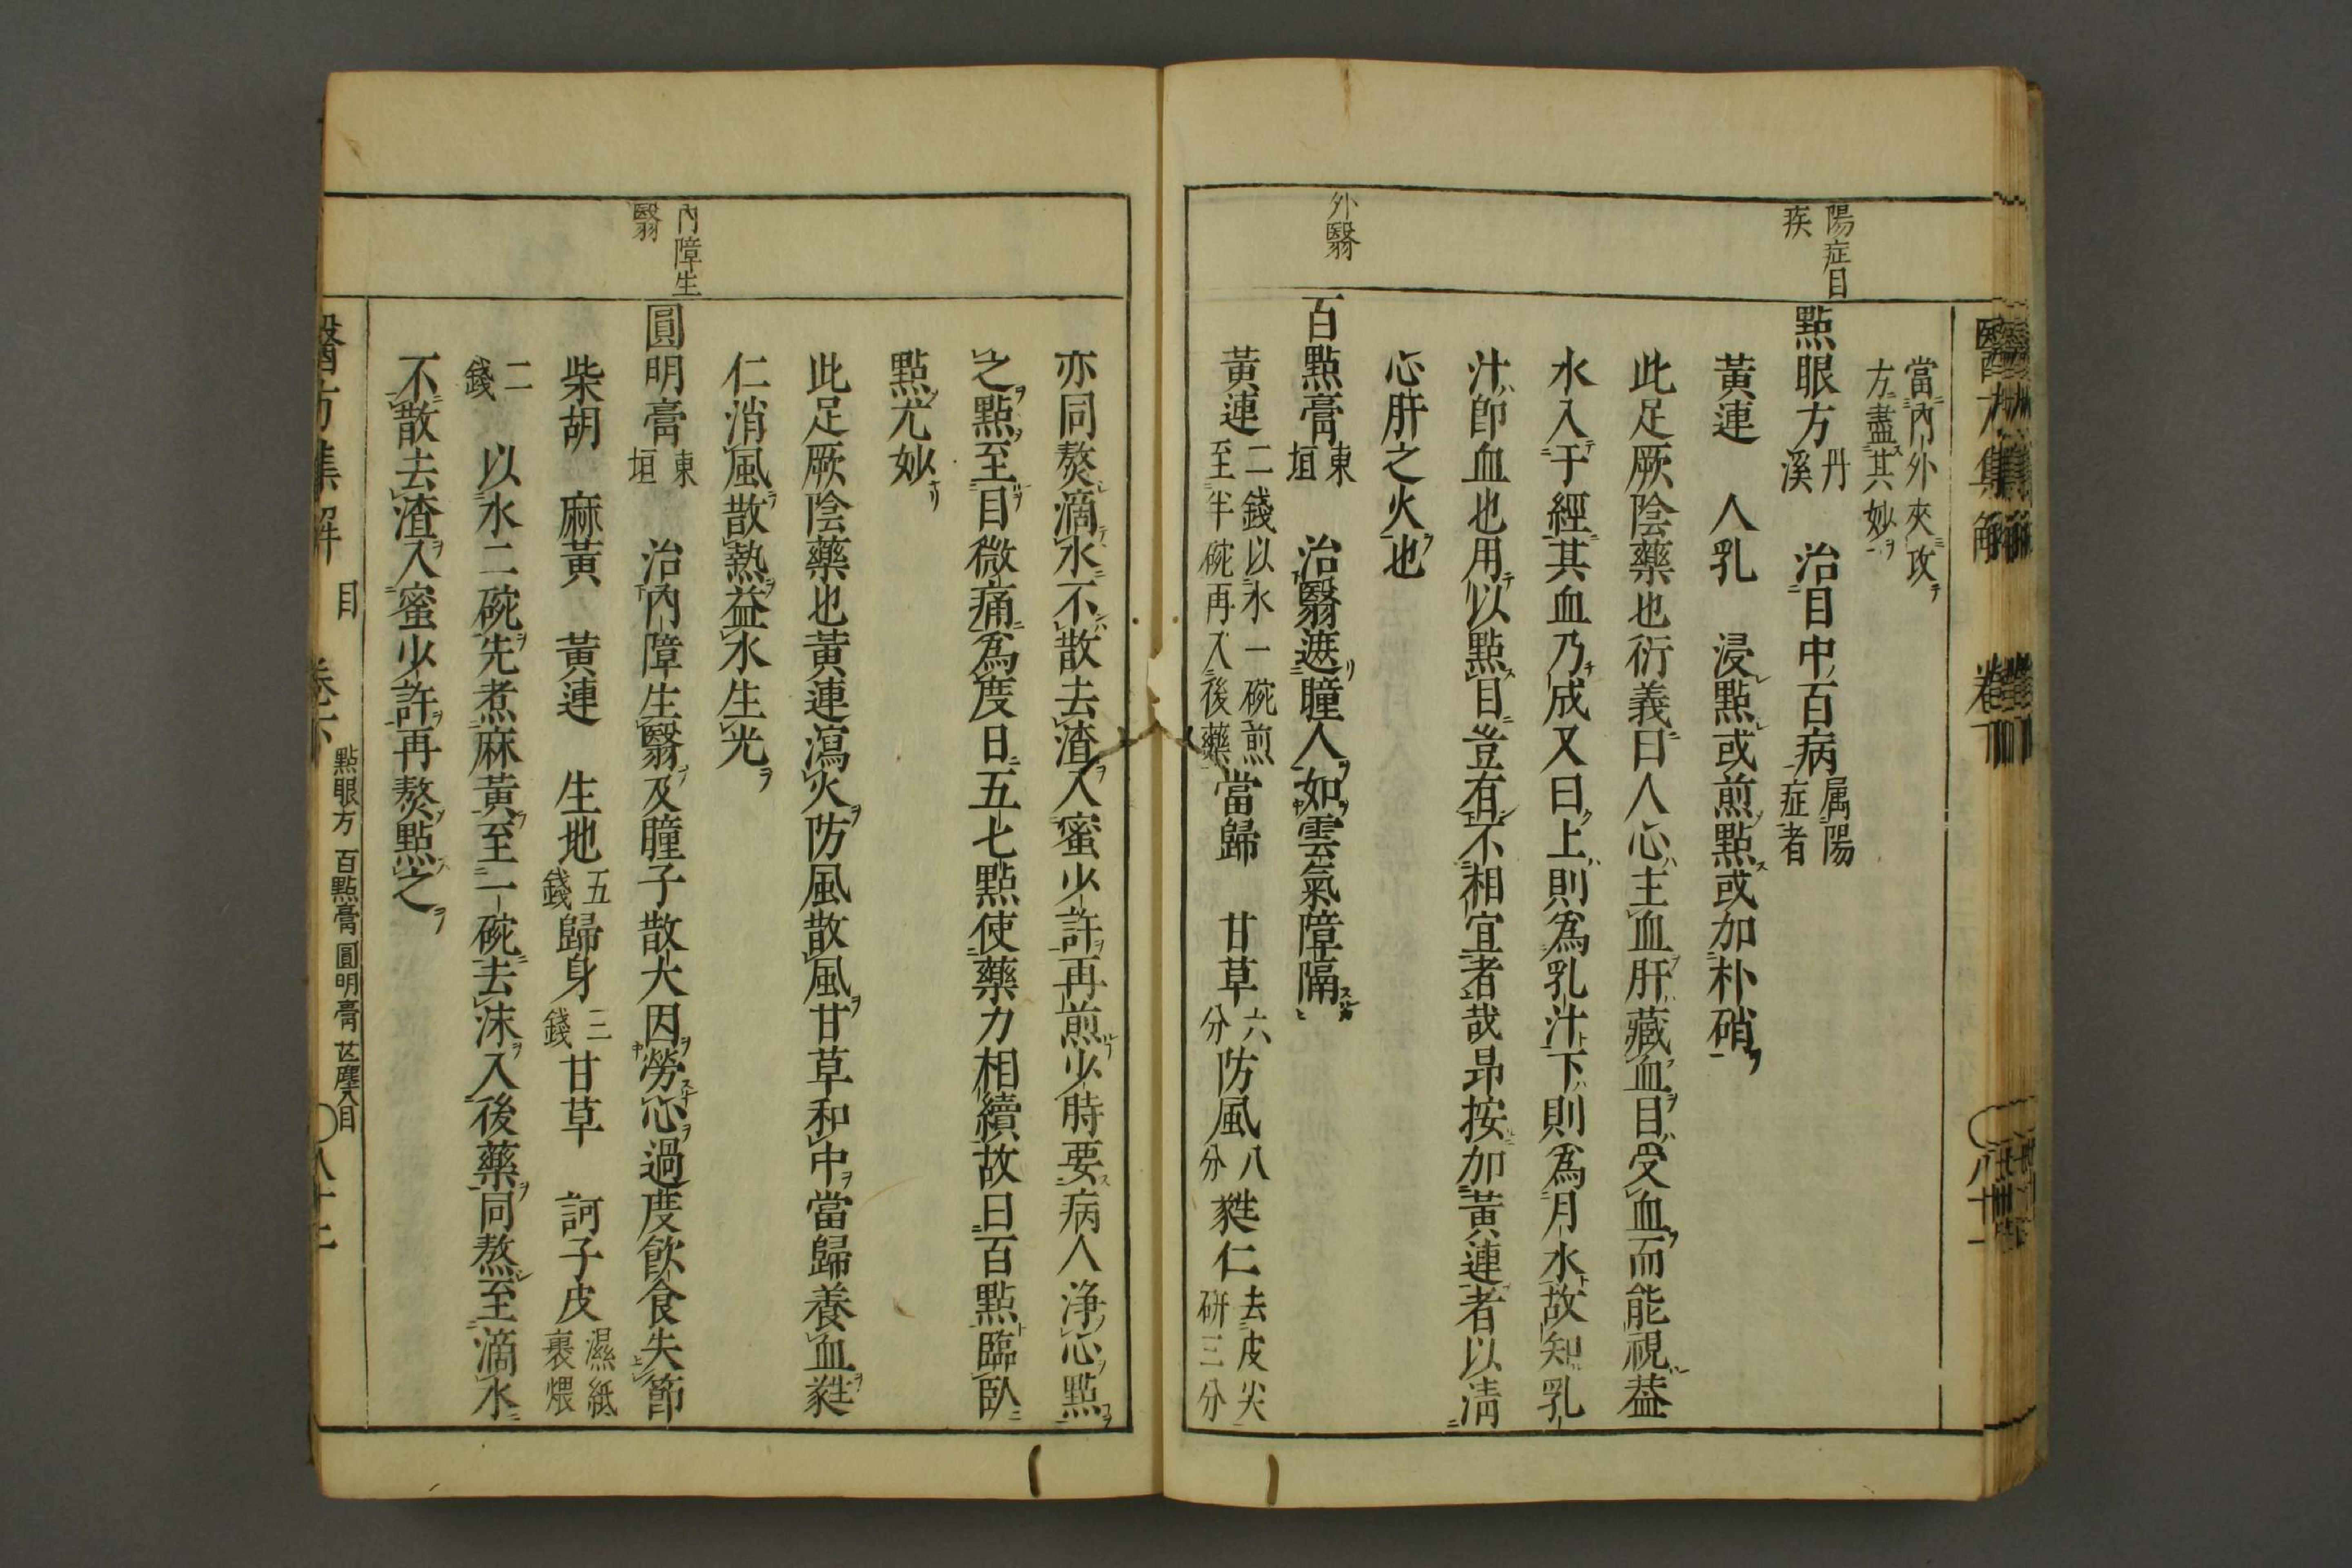 陽症目
疾
外翳
當內外夾攻
方盡其妙
點眼方 丹溪 治目中百病 属陽症者
黃連 人乳 浸點或煎點或加朴硝
此足厥陰藥也衍義曰人心主血肝藏血目受血而能視葢
水入于經其血乃成又曰上則爲乳汁下則爲月水故知乳
汁卽血也用以點目豈有不相宜者哉昂按加黃連者以淸
心肝之火也
百點膏 東垣 治翳遮瞳人如雲氣障隔
黃連 二錢以水一碗煎至半碗再入後藥 當歸 甘草 六分 防風 八分 蕤仁 去皮尖研三分
內障生
翳
亦同熬滴水不散去渣入蜜少許再煎少時要病人淨心點
之點至目微痛爲度日五七點使藥力相續故曰百點臨臥
點尤妙
此足厥陰藥也黃連瀉火防風散風甘草和中當歸養血蕤
仁消風散熱益水生光
圓明膏 東垣 治內障生翳及瞳子散大因勞心過度飲食失節
柴胡 麻黃 黃連 生地 五錢 歸身 三錢 甘草 訶子皮 濕紙裹煨
二錢 以水二碗先煮麻黃至一碗去沫入後藥同熬至滴水
不散去渣入蜜少許再熬點之
醫方集解 目 卷下 點眼方 百點膏 圓明膏 芒塵入目 八十二